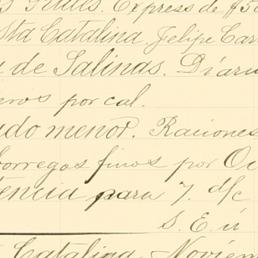 Express de $50
sta Catalina Felipe Car
de Salinas. Diari
eros por cal.
do menor. Raciones
borregas finos por Oc
tencia para 7. d/c
S. E. ú
Catalina, Noviem